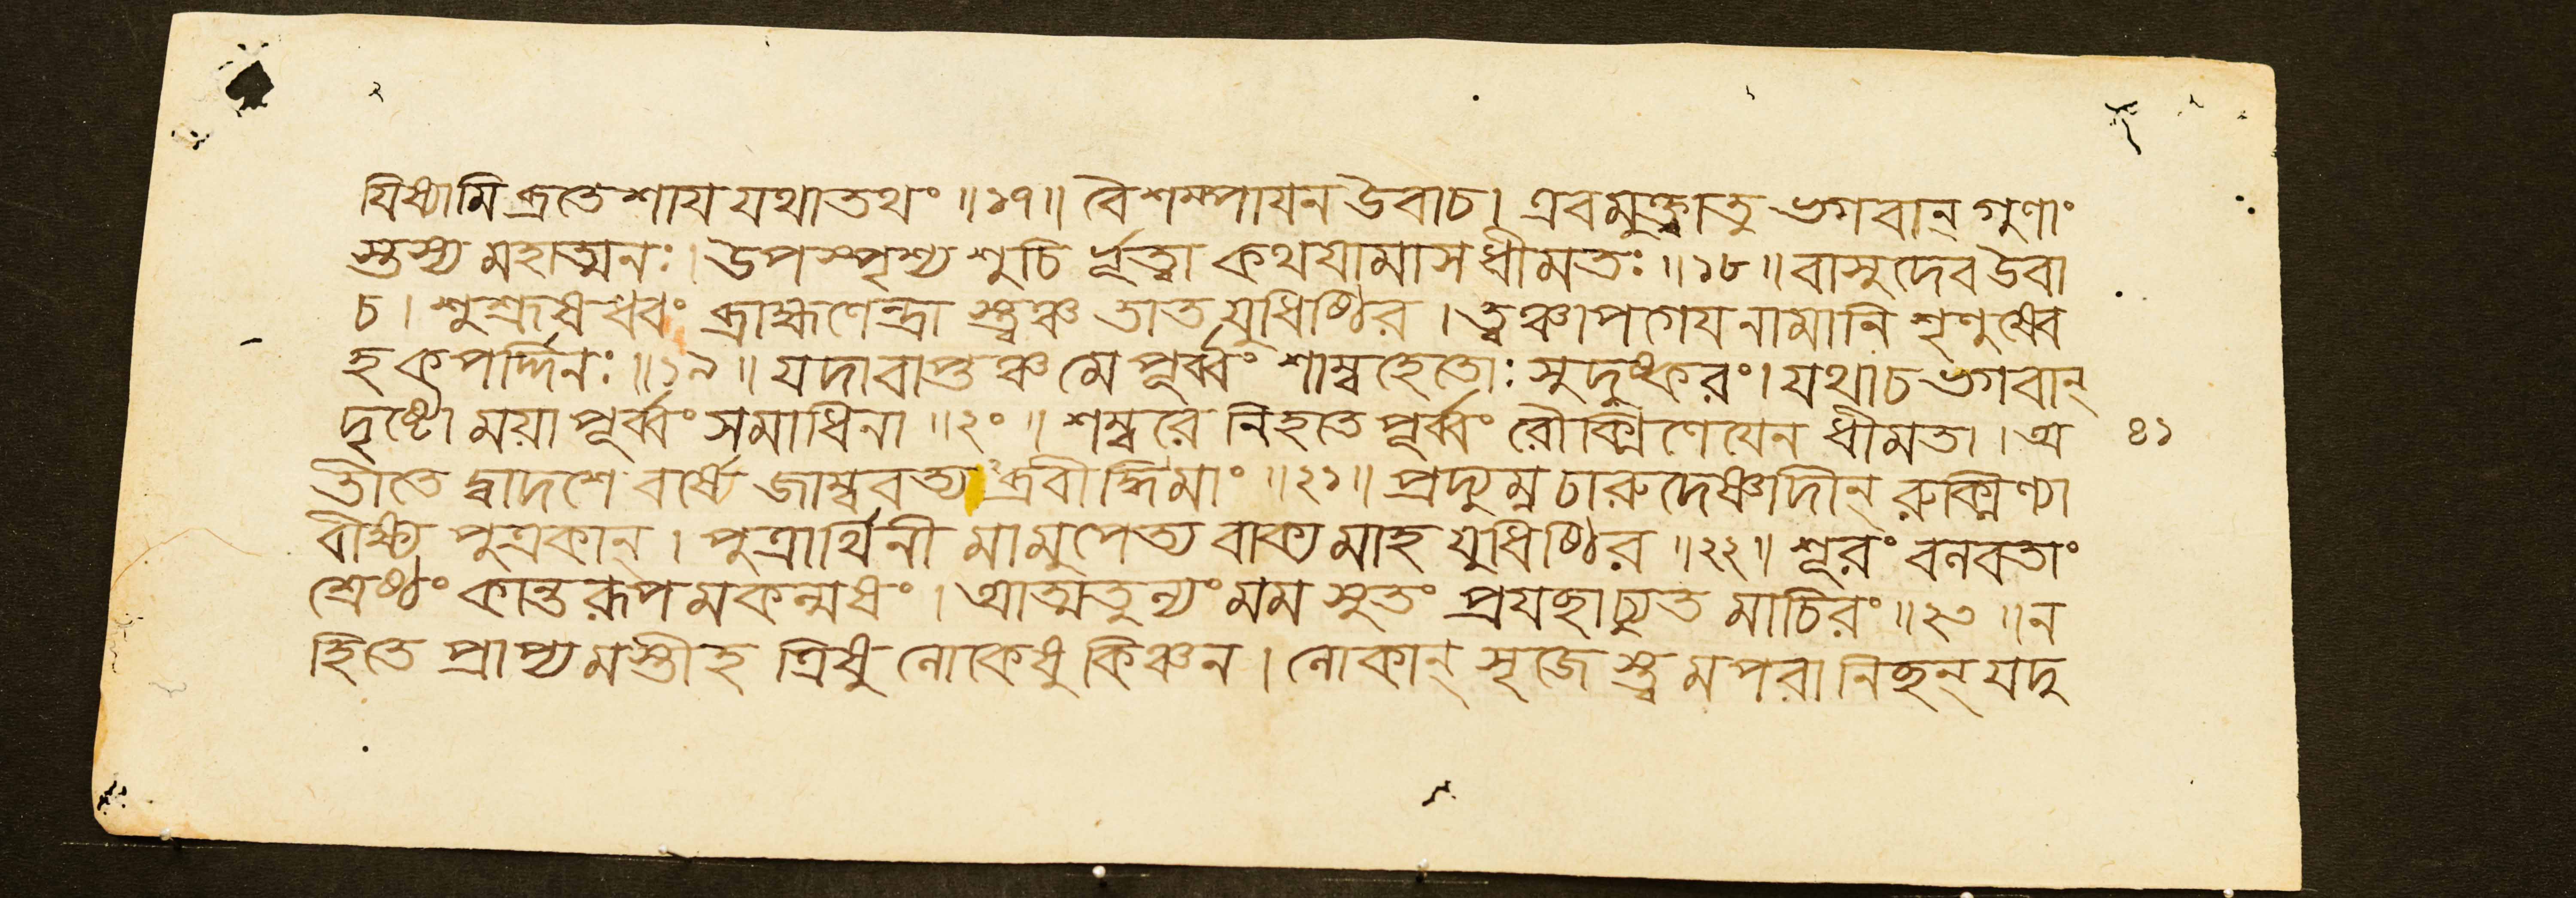 যিষ্যামি ব্রতেশায যথাতথং ॥১৭॥ বৈশম্পাযন উবাচ। এবমুক্ত্বা তু ভগবান্ গুণাং
স্তস্য মহাত্মনঃ। উপস্পৃশ্য শুচি র্ভূত্বা কথযামাস ধীমতঃ ॥১৮॥ বাসুদেব উবা
চ। শুশ্রূষধ্বং ব্রাহ্মণেন্দ্রা স্ত্বঞ্চ তাত যুধিষ্ঠির। ত্বঞ্চাপগেয নামানি শৃণুষ্বেব
হ কপর্দ্দিনঃ ॥১৯॥ যদাবাপ্তঞ্চ মে পূর্ব্বং শাম্বহেতোঃ সুদুষ্করং। যথা চ ভগবান্
দৃষ্টো ময়া পূর্ব্বং সমাধিনা ॥২০॥ শম্বরে নিহতে পূর্ব্বং রৌক্মিণেযেন ধীমতা। অ
তীতে দ্বাদশে বর্ষে জাম্ববত্য ব্রবীদ্ধিমাং ॥২১॥ প্রদ্যুম্ন চারুদেষ্ণাদীন্ রুক্মিণ্যা
বীক্ষ্য পুত্রকান্। পুত্রার্থিনী মামুপেত্য বাক্যমাহ যুধিষ্ঠির ॥২২॥ শূরং বলবতাং
শ্রেষ্ঠং কান্তরূপমকল্মষং। আত্মতুল্যং মম সুতং প্রযচ্ছাচ্যুত মাচিরং ॥২৩॥ ন
হি তে প্রাপ্যমস্তীহ ত্রিষু লোকেষু কিঞ্চন। লোকান্ সৃজে স্ত্বমপরানিচ্ছন্ যদু
৪১